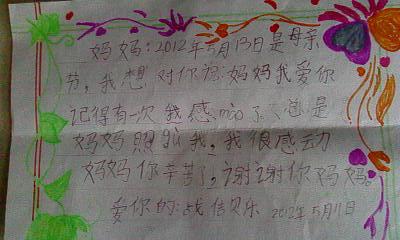 妈妈:2012年5月13日是母亲
节,我想对你说:妈妈我爱你
记得有一次我感冒了、总是
妈妈照顾我,我很感动
妈妈你辛苦了,谢谢你妈妈。
爱你的:战 贝乐 2012年5月11日